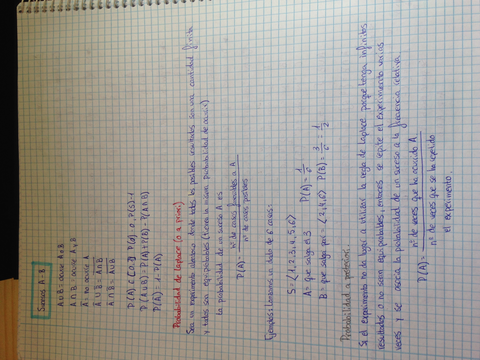 Sucesos A y B
A∪B = ocurre A o B
A∩B = ocurre A y B
Ā = no ocurre A
A∪B = A∩B
A∩B = A∪B
P(A) ∈ [0,1] P(∅) = 0 P(S) = 1
P(A∪B) = P(A)+P(B)-P(A∩B)
P(Ā) = 1-P(A)
Probabilidad de Laplace (o a priori)
Sea un experimento aleatorio donde todos los posibles resultados son una cantidad finita
y todos son equiprobables (tienen la misma probabilidad de ocurrir)
La probabilidad de un suceso A es
P(A) = nº de casos favorables a A
nº de casos posibles
Ejemplos: Lanzamos un dado de 6 caras:
S = {1, 2, 3, 4, 5, 6}
A = que salga el 3 P(A) = 1/6
B = que salga par = {2, 4, 6} P(B) = 3/6 = 1/2
Probabilidad a posteriori:
Si el experimento no da lugar a utilizar la regla de Laplace porque tenga infinitos
resultados o no sean equiprobables, entonces se repite el experimento varias
veces y se asocia la probabilidad de un suceso a la frecuencia relativa
P(A) = nº de veces que ha ocurrido A
nº de veces que se ha repetido
el experimento